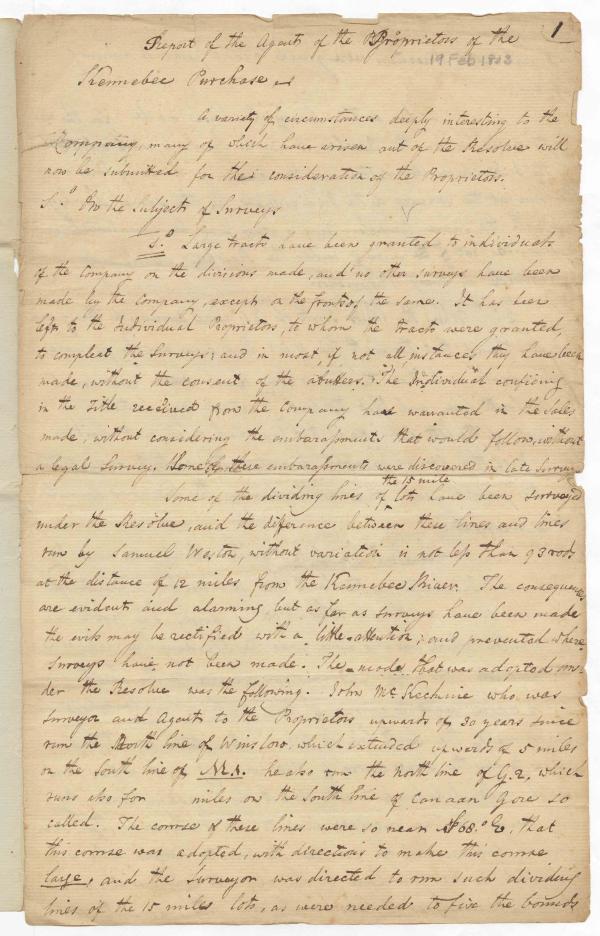 Report of the Agent of the Proprietors of the
1
19 Feb 1813
Kennebec Purchase
A variety of circumstances deeply interesting to the
Company, many of which have arisen out of the Resolve will
now be submitted for the consideration of the Proprietors.
On the Subject of Surveys
Large tracts have been granted to individuals
of the Company on the divisions made, and no other surveys have been
made by the Company, except on the fronts of the same. It has been
left to the Individual Proprietors, to whom the tracts were granted,
to compleat the Surveys; and in most, if not all instances they have been
made, without the consent of the abutters. The Individual confiding
in the Title received from the Company have warranted in the Sales
made, without considering the embarassments that would follow, without
a legal Survey. these embarassments were discovered in late Surveys
the 15 mile
Some of the dividing lines of lots have been surveyed
under the Resolve, and the difference between these lines and lines
run by Samuel Weston, without variation is not less than 93 rods
at the distance of 12 miles from the Kennebec River. The consequences
are evident and alarming, but as far as surveys have been made
the evils may be rectified with a little attention, and prevented where
surveys have not been made. The mode that was adopted un-
der the Resolve was the following. John McKechnie who was
Surveyor and Agent to the Proprietors upwards of 30 years since
run the North line of Winslow, which extended upwards of 5 miles
on the South line of he also run the north line of G.2, which
runs also for miles on the South line of Canaan Gore so
called. The course of these lines were so near that
this course was adopted, with directions to make this course
large, and the Surveyor was directed to run such dividing
lines of the 15 miles lots, as were needed to fix the bounds